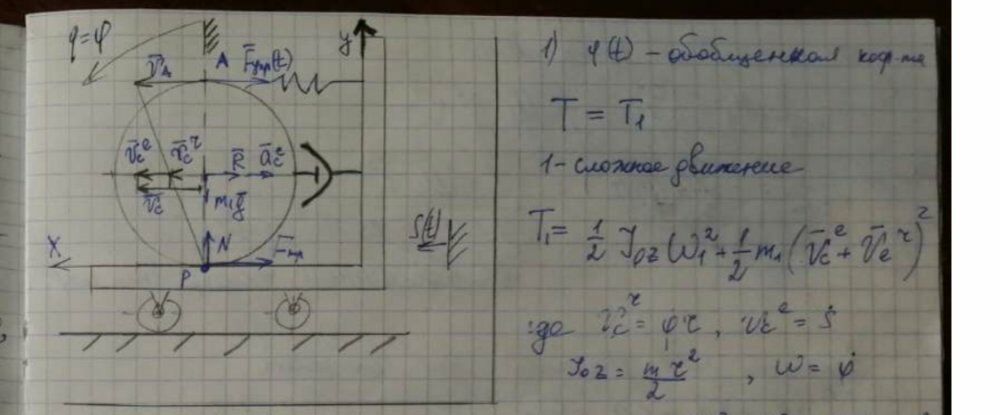 q=φ
A
F̄упр(t)
y
V̄A
V̄cᵉ
V̄cʳ
R̄
ācʳ
V̄c
m₁ḡ
S(t)
X
N̄
F̄тр
P
1) φ(t) – обобщенная коор-та
T = T₁
1 – сложное движение
T₁ = 1/2 Joz ω₁² + 1/2 m₁ (V̄cᵉ + V̄cʳ)²
где Vcʳ = φ̇r, Vcᵉ = Ṡ
Joz = mr²/2, ω = φ̇